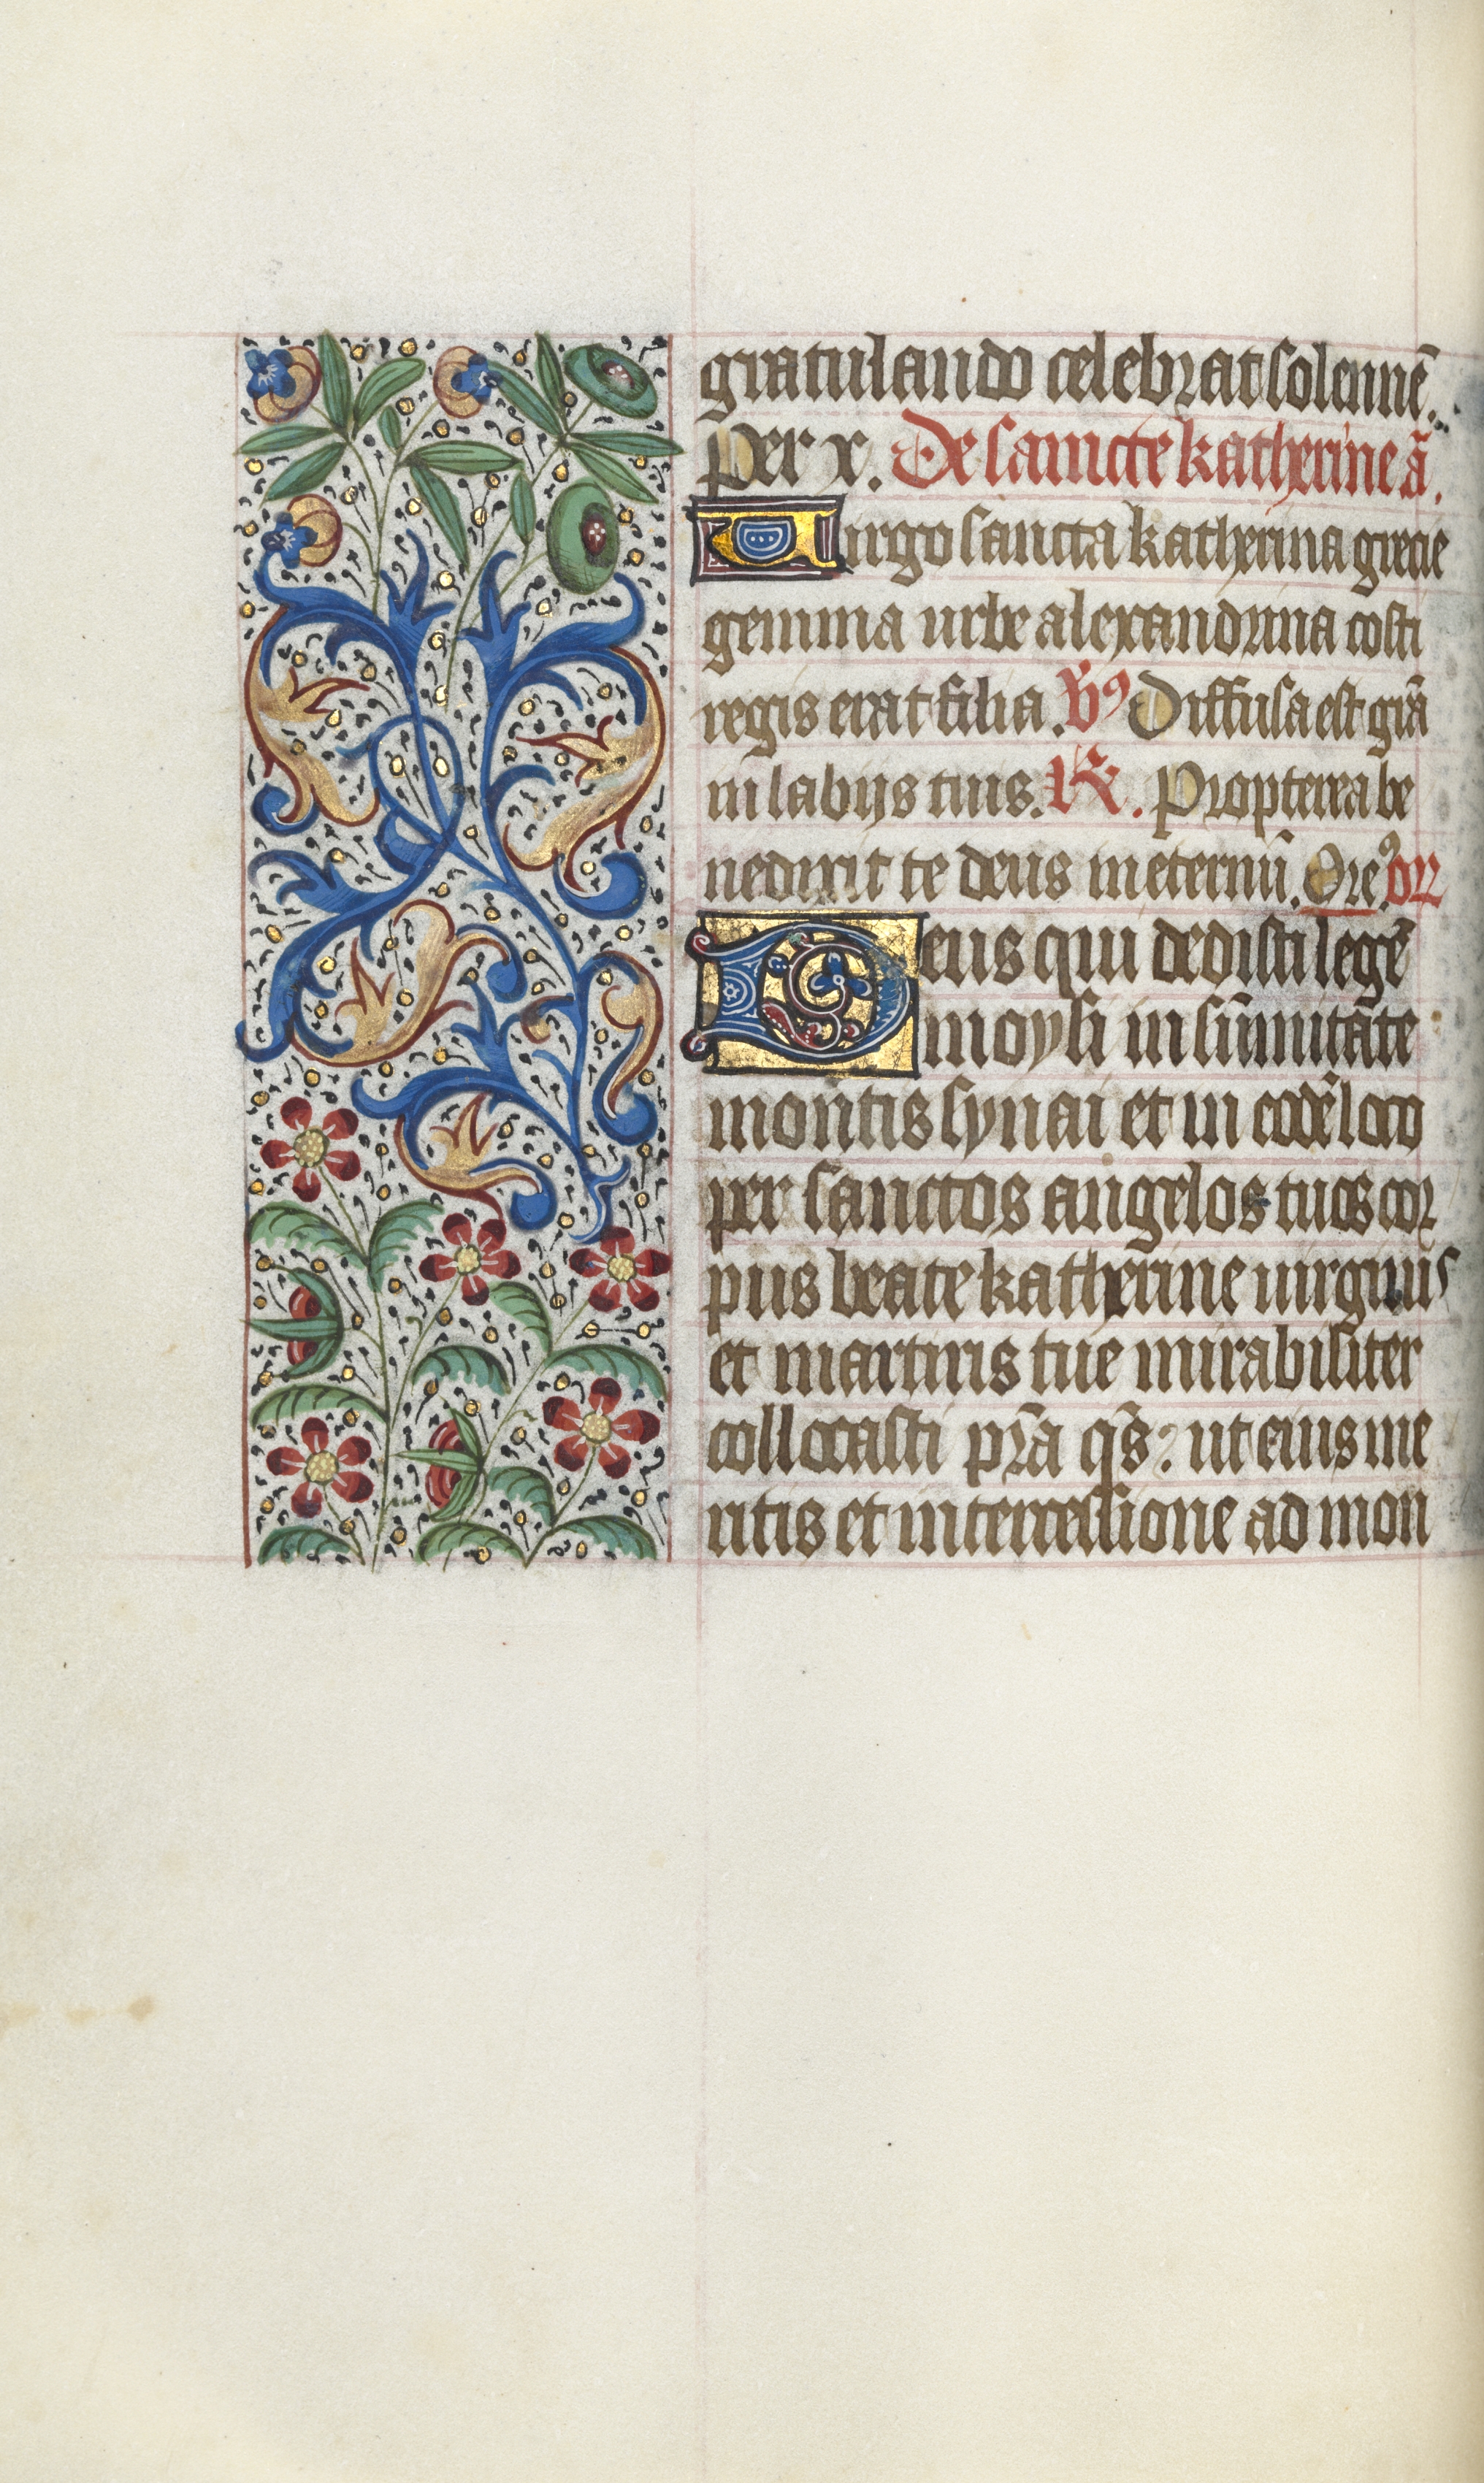 gratulando celebrat solennē.
per x. De sancte katherine ā.
Virgo sancta katherina grecie
gemma urbe alexandrina costi
regis erat filia. V̄9 Diffusa est grā
in labijs tuis. R̄. Propterea be
nedixit te deus in eternū. Ore9. orr
Deus qui dedisti legē
moysi in sūmitate
montis synai et in eodē loco
per sanctos angelos tuos cor
pus beate katherine uirginis
et martiris tue mirabiliter
collocasti prā q̄s: ut eius me
ritis et intercessione ad mon